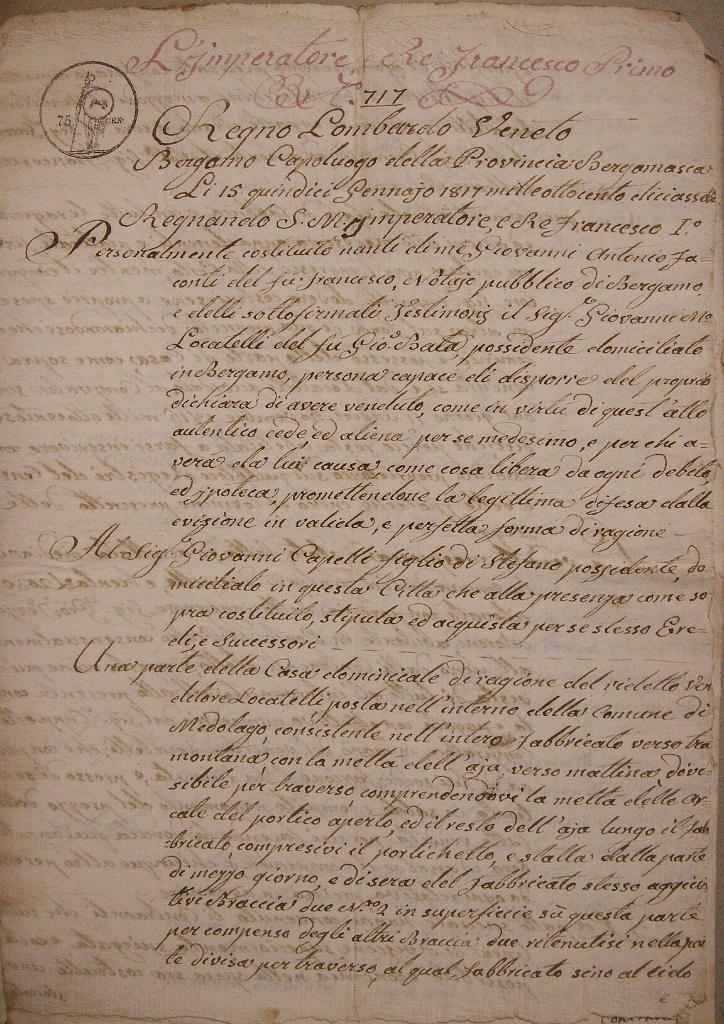 L'Imperatore, e Re Francesco Primo
N.° 717
75 CEN
Regno Lombardo Veneto
Bergamo Capoluogo della Provincia Bergamasca
Li 15 quindici Gennajo 1817 mille ottocento diciasette
Regnando S. M. Imperatore, e Re Francesco I.°
Personalmente costituito nanti di me Giovanni Antonio Fa-
conti del fu Francesco, Notajo pubblico di Bergamo,
e delli sottofirmati Testimonj il Sig.r Giovanni M.a
Locatelli del fu Gio. Bata, possidente domiciliato
in Bergamo, persona capace di disporre del proprio
dichiara di avere venduto, come in virtù di quest'atto
autentico cede, ed aliena per se medesimo, e per chi a-
verà da lui causa, come cosa libera da ogni debito,
ed ipoteca, promettendone la legittima difesa dalla
evizione in valida, e perfetta forma di ragione -
Al Sig.r Giovanni Capelli figlio di Stefano possidente, do-
miciliato in questa Città che alla presenza come so-
pra costituito, stipula ed acquista per se stesso Ere-
di, e Successori
Una parte della Casa dominicale di ragione del ridetto Ven-
ditore Locatelli posta nell'interno della Comune di
Medolago, consistente nell'intero fabbricato verso tra-
montana con la metta dell'aja, verso mattina divi-
sibile per traverso comprendendovi la metta delle ar-
cate del portico aperto, ed il resto dell'aja lungo il fab-
bricato, compresivi il portichetto, e stalla dalla parte
di mezzo giorno, e di sera del fabbricato stesso aggiun-
tivi Braccia due N.° 2 in superficie sù questa parte
per compenso degli altri Braccia due ritenutisi nella par-
te divisa per traverso, al qual fabbricato sino al cielo